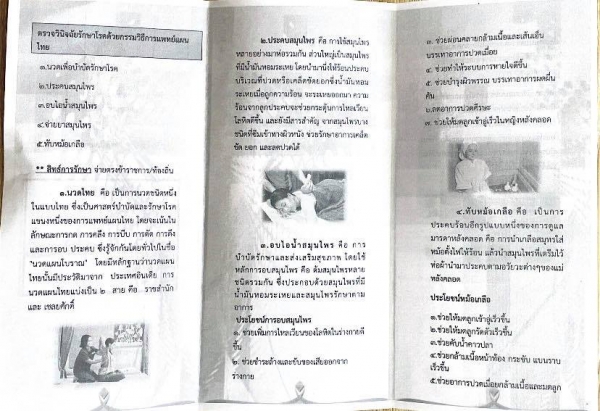 ตรวจวินิจฉัยรักษาโรคด้วยกรรมวิธีการแพทย์แผน
ไทย
๑.นวดเพื่อบำบัดรักษาโรค
๒.ประคบสมุนไพร
๓.อบไอน้ำสมุนไพร
๔.จ่ายยาสมุนไพร
๕.ทับหม้อเกลือ
** สิทธิ์การรักษา จ่ายตรงข้าราชการ/ท้องถิ่น
๑.นวดไทย คือ เป็นการนวดชนิดหนึ่ง
ในแบบไทย ซึ่งเป็นศาสตร์บำบัดและรักษาโรค
แขนงหนึ่งของการแพทย์แผนไทย โดยจะเน้นใน
ลักษณะการกด การคลึง การบีบ การดัด การดึง
และการอบ ประคบ ซึ่งรู้จักกันโดยทั่วไปในชื่อ
"นวดแผนโบราณ" โดยมีหลักฐานว่านวดแผน
ไทยนั้นมีประวัติมาจาก ประเทศอินเดีย การ
นวดแผนไทยแบ่งเป็น ๒ สาย คือ ราชสำนัก
และ เชลยศักดิ์
๒.ประคบสมุนไพร คือ การใช้สมุนไพร
หลายอย่างมาห่อรวมกัน ส่วนใหญ่เป็นสมุนไพร
ที่มีน้ำมันหอมระเหย โดยนำมานึ่งให้ร้อนประคบ
บริเวณที่ปวดหรือเคล็ดขัดยอกซึ่งน้ำมันหอม
ระเหยเมื่อถูกความร้อน จะระเหยออกมา ความ
ร้อนจากลูกประคบจะช่วยกระตุ้นการไหลเวียน
โลหิตดีขึ้น และยังมีสารสำคัญ จากสมุนไพรบาง
ชนิดที่ซึมเข้าทางผิวหนัง ช่วยรักษาอาการเคล็ด
ขัด ยอก และลดปวดได้
๓.อบไอน้ำสมุนไพร คือ การ
บำบัดรักษาและส่งเสริมสุขภาพ โดยใช้
หลักการอบสมุนไพร คือ ต้มสมุนไพรหลาย
ชนิดรวมกัน ซึ่งประกอบด้วยสมุนไพรที่มี
น้ำมันหอมระเหยและสมุนไพรรักษาตาม
อาการ
ประโยชน์การอบสมุนไพร
๑. ช่วยเพิ่มการไหลเวียนของโลหิตในร่างกายดี
ขึ้น
๒. ช่วยชำระล้างและขับของเสียออกจาก
ร่างกาย
๓. ช่วยผ่อนคลายกล้ามเนื้อและเส้นเอ็น
บรรเทาอาการปวดเมื่อย
๔. ช่วยทำให้ระบบการหายใจดีขึ้น
๕. ช่วยบำรุงผิวพรรณ บรรเทาอาการผดผื่น
คัน
๖.ลดอาการปวดศีรษะ
๗. ช่วยให้มดลูกเข้าอู่เร็วในหญิงหลังคลอด
๔.ทับหม้อเกลือ คือ เป็นการ
ประคบร้อนอีกรูปแบบหนึ่งของการดูแล
มารดาหลังคลอด คือ การนำเกลือสมุทรใส่
หม้อตั้งไฟให้ร้อน แล้วนำสมุนไพรที่เตรียมไว้
ห่อผ้านำมาประคบตามอวัยวะต่างๆของแม่
หลังคลอด
ประโยชน์หม้อเกลือ
๑.ช่วยให้มดลูกเข้าอู่เร็วขึ้น
๒.ช่วยให้มดลูกรัดตัวเร็วขึ้น
๓.ช่วยขับน้ำคาวปลา
๔.ช่วยกล้ามเนื้อหน้าท้อง กระชับ แบนราบ
เร็วขึ้น
๕.ช่วยอาการปวดเมื่อยกล้ามเนื้อและมดลูก